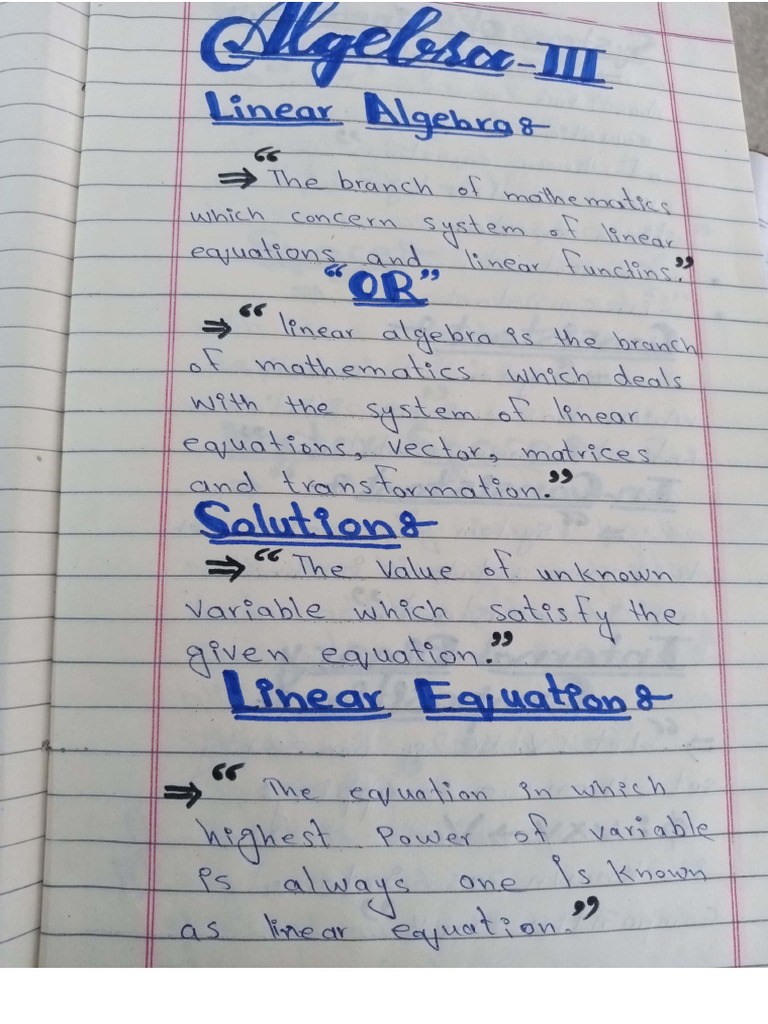 Algebra-III
Linear Algebra:-
⇒ "The branch of mathematics
which concern system of linear
equations and linear functins."
"OR"
⇒ "linear algebra is the branch
of mathematics which deals
with the system of linear
equations, vector, matrices
and transformation."
Solution:-
⇒ "The value of unknown
variable which satisfy the
given equation."
Linear Equation:-
⇒ "The equation in which
highest power of variable
is always one is known
as linear equation."